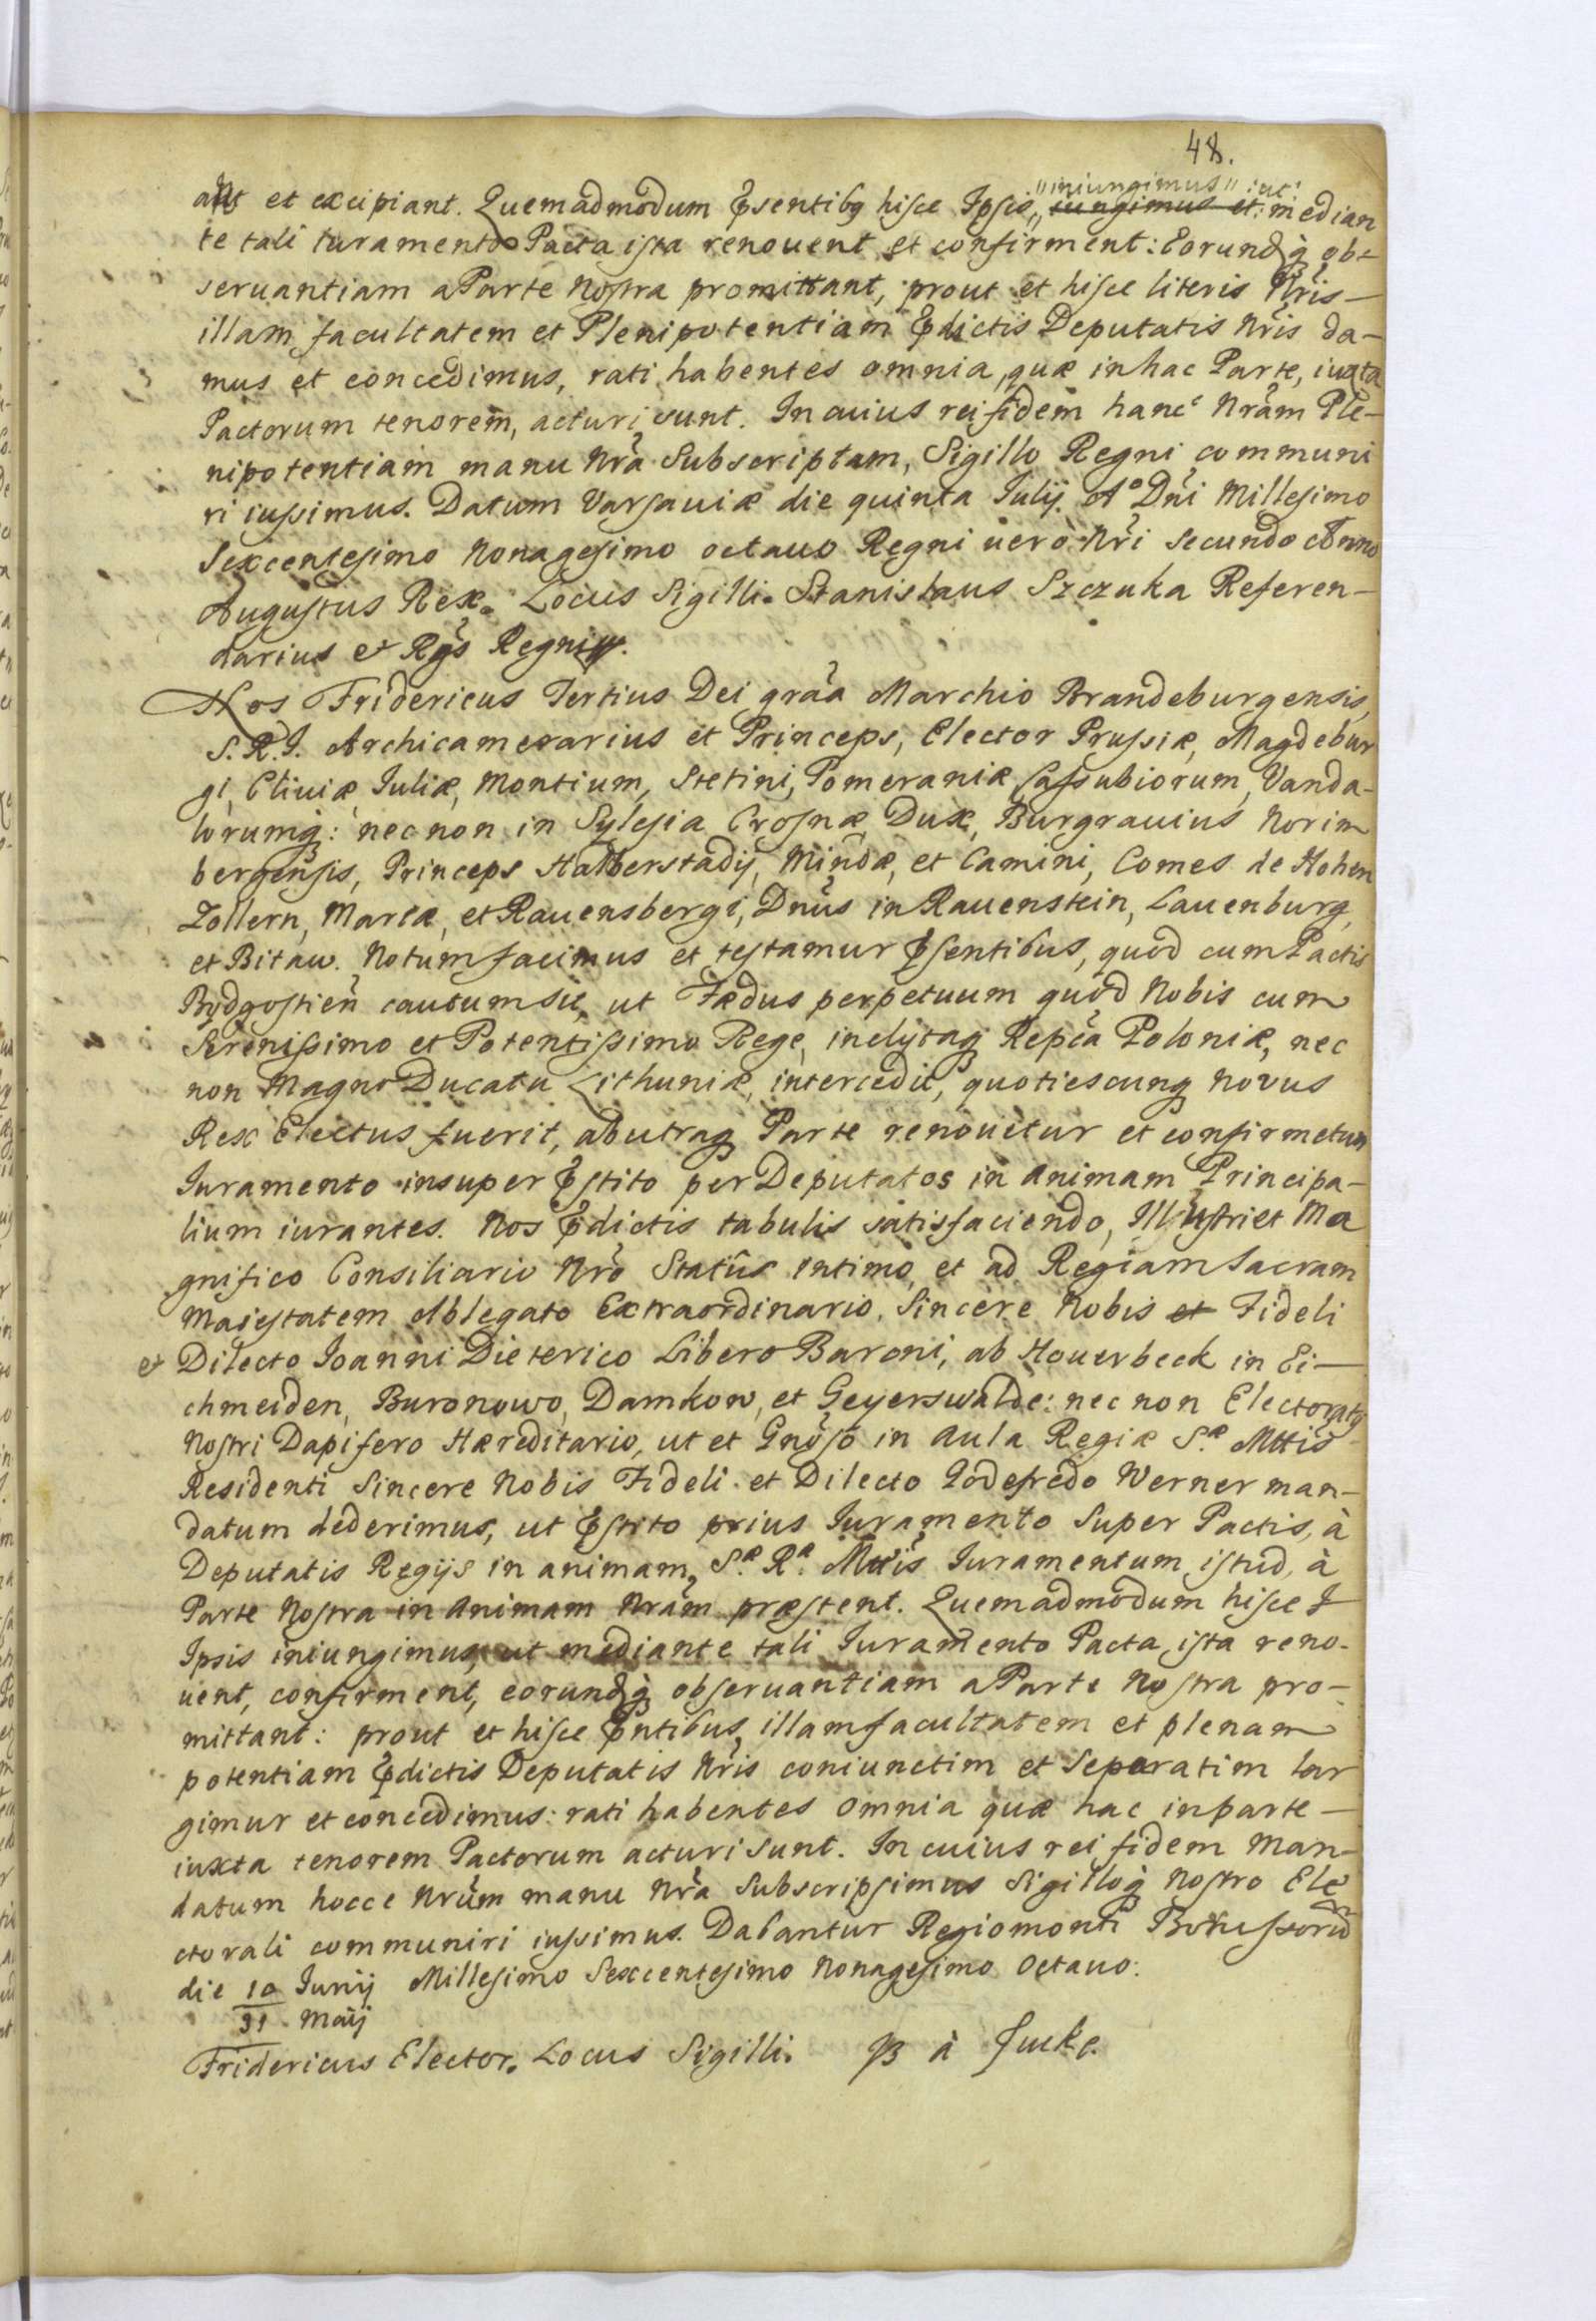 48.
"iniungimus" ut:
ant et excipiant. Quemadmodum Psentibq hisce Ipsis, iungimus et: median
te tali Iuramento Pacta ista renouent et confirment: Eorundq obseruantiam
seruantiam a Parte Nostra promittant, prout et hisce literis Nris—
illam facultatem et Plenipotentiam Pdictis Deputatis Nris da-
mus et concedimus, rati habentes omnia, quæ in hac Parte, iuxta
Pactorum tenorem, acturi sunt. In cuius rei fidem hanc Nram Ple-
nipotentiam manu Nra Subscriptam, Sigillo Regni communi
ri iussimus. Datum Varsauiæ die quinta Iulij. Aº Dni Millesimo
Sexcentesimo Nonagesimo octauo Regni uerò Nri secundo Anno
Augustus Rex. Locus Sigilli. Stanislaus Szczuka Referen-
darius et Rgs Regni.
Nos Fridericus Tertius Dei graa Marchio Brandeburgensis,
S.R.I. Archicamerarius et Princeps, Elector Prussiæ, Magdebur
gi, Cliuiæ, Iuliæ, Montium, Stetini, Pomeraniæ, Cassubiorum, Vanda-
lorumq: nec non in Sylesia Crosnæ Dux, Burgrauius Norim
bergensis, Princeps Halberstadij, Mindæ, et Camini, Comes de Hohen
Zollern, Marcæ, et Rauensbergi, Dnus in Rauenstein, Lauenburg,
et Bitau. Notum facimus et testamur Psentibus, quod cum Pactis
Bydgostien cautum sit, ut Fædus perpetuum quod Nobis cum
Serenissimo et Potentissimo Rege, inclytaq Repca Poloniæ, nec
non Magno Ducatu Lithuniæ, intercedit, quotiescunq novus
Rex Electus fuerit, ab utraq Parte renouetur et confirmetur
Iuramento insuper Pstito per Deputatos in Animam Principa-
lium iurantes. Nos Pdictis tabulis satisfaciendo, Illustri et Ma
gnifico Consiliario Nro Statûs intimo, et ad Regiam Sacram
Maiestatem Ablegato Extraordinario, Sincere Nobis et Fideli
et Dilecto Ioanni Dieterico Libero Baroni, ab Houerbeck in Ei—
chmeiden, Buronowo, Damkow, et Geyerswalde: nec non Electoratq
Nostri Dapifero Hæreditario, ut et Gnoso in Aula Regiæ S.æ Mttis
Residenti Sincere Nobis Fideli et Dilecto Godefredo Werner man-
datum dederimus, ut Pstito prius Iuramento Super Pactis, à
Deputatis Regijs in animam S.æ R.æ Mttis Iuramentum istud, à
Parte Nostra in Animam Nram præstent. Quemadmodum hisce I
Ipsis iniungimus, ut mediante tali Iuramento Pacta, ista reno-
uent, confirment, eorundq obseruantiam a Parte Nostra pro-
mittant: prout et hisce Pntibus, illam facultatem et plenam
potentiam Pdictis Deputatis Nris coniunctim et Separatim lar
gimur et concedimus: rati habentes omnia quæ hac in parte—
iuxta tenorem Pactorum acturi sunt. In cuius rei fidem Man-
datum hocce Nrum manu Nra Subscripsimus Sigilloq Nostro Ele
ctorali communiri iussimus. Dabantur Regiomonti Borussorum
die 10/31 Iunij/Maij Millesimo Sexcentesimo Nonagesimo Octauo.
Fridericus Elector. Locus Sigilli. P à Fucke.